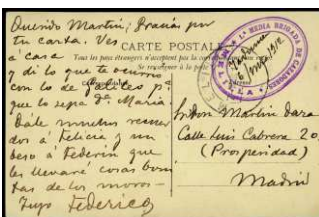 Querido Martin: Gracias por
tu carta. Ves
á casa
y di lo que te ocurrio
con lo de
que lo sepa Dª Maria.
Dále muchos recuer
dos á Felicia y un
beso á Federin que
les llevaré cosas boni
tas de los moros—
Tuyo Federico
CARTE POSTALE
Tous les pays étrangers n'acceptent pas la
Se renseigner à la poste
1ª MEDIA BRIGADA DE CAZADORES
MELILLA
1912
Don Martin
Calle Luis Cabrera 20
(Prosperidad)
Madrid